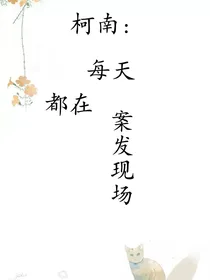 柯南：
每天
都在
案发现场